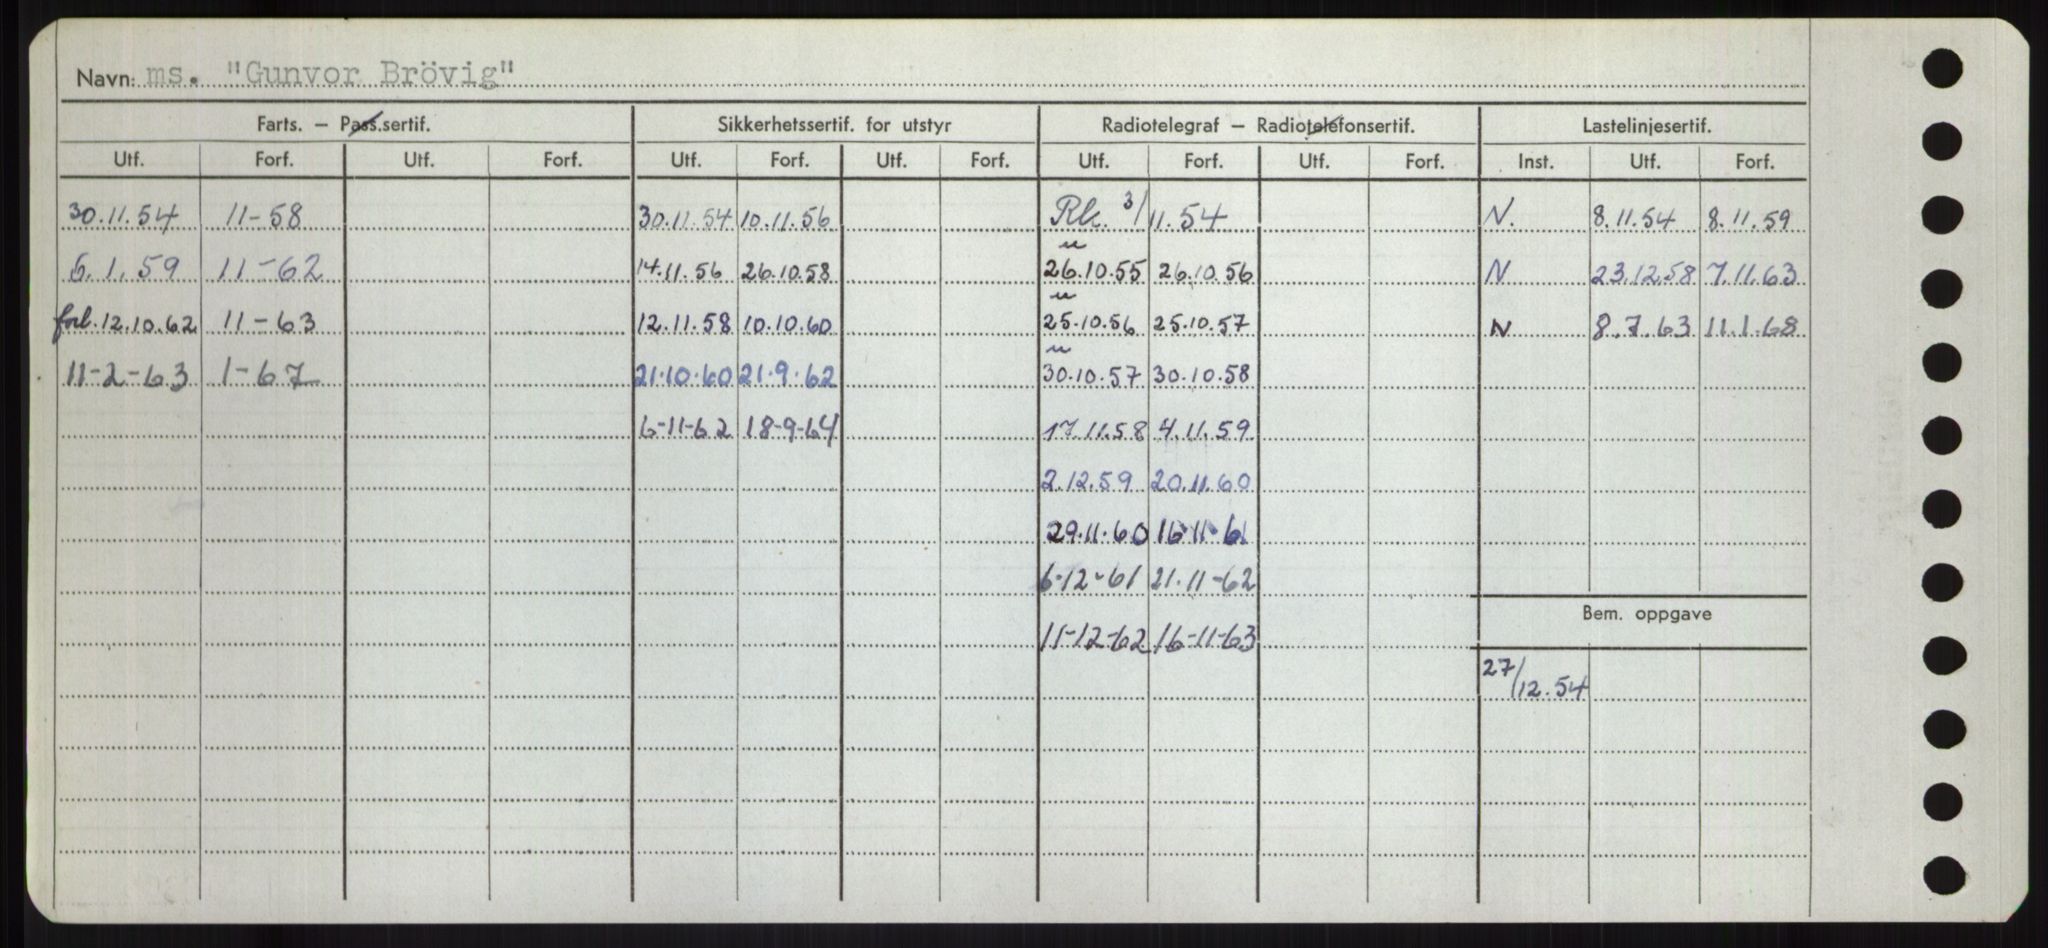 Navn: ms. "Gunvor Brövig"
Farts. – Pass.sertif. Sikkerhetssertif. for utstyr Radiotelegraf – Radiotelefonsertif. Lastelinjesertif.
Utf. Forf. Utf. Forf. Utf. Forf. Utf. Forf. Utf. Forf. Utf. Forf. Inst. Utf. Forf.
30.11.54 11-58 30.11.54 10.11.56 Rk. 3/11.54 N. 8.11.54 8.11.59
6.1.59 11-62 14.11.56 26.10.58 26.10.55 26.10.56 N 23.12.58 7.11.63
forl. 12.10.62 11-63 12.11.58 10.10.60 25.10.56 25.10.57 N 8.7.63 11.1.68
11-2-63 1-67 21.10.60 21.9.62 30.10.57 30.10.58
6-11-62 18-9-64 17.11.58 4.11.59
2.12.59 20.11.60
29.11.60 16.11.61
6-12-61 21.11-62
Bem. oppgave
11-12-62 16-11-63
27/12.54